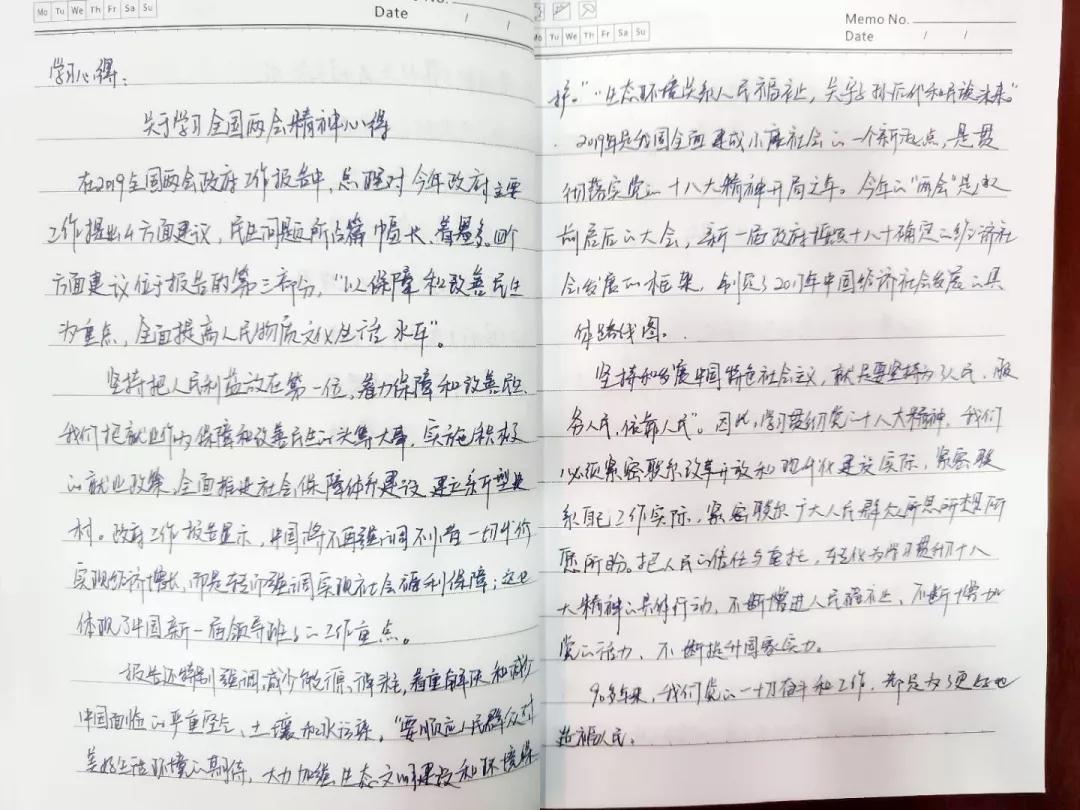 Mo Tu We Th Fr Sa Su
Memo No.
Date / /
学习心得：
关于学习全国两会精神心得
在2019全国两会政府工作报告中，总理对今年政府主要
工作提出4方面建议，民生问题所占篇幅长、着墨多。四个
方面建议位于报告的第三部分，“以保障和改善民生
为重点，全面提高人民物质文化生活水平”。
坚持把人民利益放在第一位，着力保障和改善民生。
我们把就业作为保障和改善民生的头等大事，实施积极
的就业政策，全面推进社会保障体系建设，建立新型农
村。政府工作报告显示，中国将不再强调不惜一切代价
实现经济增长，而是转而强调实现社会福利保障；这也
体现了中国新一届领导班子的工作重点。
报告还特别强调，减少能源消耗，着重解决和减少
中国面临的严重空气、土壤和水污染。“要顺应人民群众对
美好生活环境的期待，大力加强生态文明建设和环境保
Mo Tu We Th Fr Sa Su
Memo No.
Date / /
护。”“生态环境关系人民福祉，关乎子孙后代和民族未来。”
2019年是我国全面建成小康社会的一个新起点，是贯
彻落实党的十八大精神开局之年。今年的“两会”是承
前启后的大会，新一届政府按照十八大确定的经济社
会发展的框架，制定了2019年中国经济社会发展的具
体路线图。
坚持和发展中国特色社会主义，就是要坚持为了人民、服
务人民，依靠人民”。因此，学习贯彻党的十八大精神，我们
必须紧密联系改革开放和现代化建设实际，紧密联
系自己工作实际，紧密联系广大人民群众所思所想所
愿所盼。把人民的信任与重托，转化为学习贯彻十八
大精神的具体行动，不断增进人民福祉、不断增加
党的活力、不断提升国家实力。
90多年来，我们党的一切奋斗和工作，都是为了更好地
造福人民。